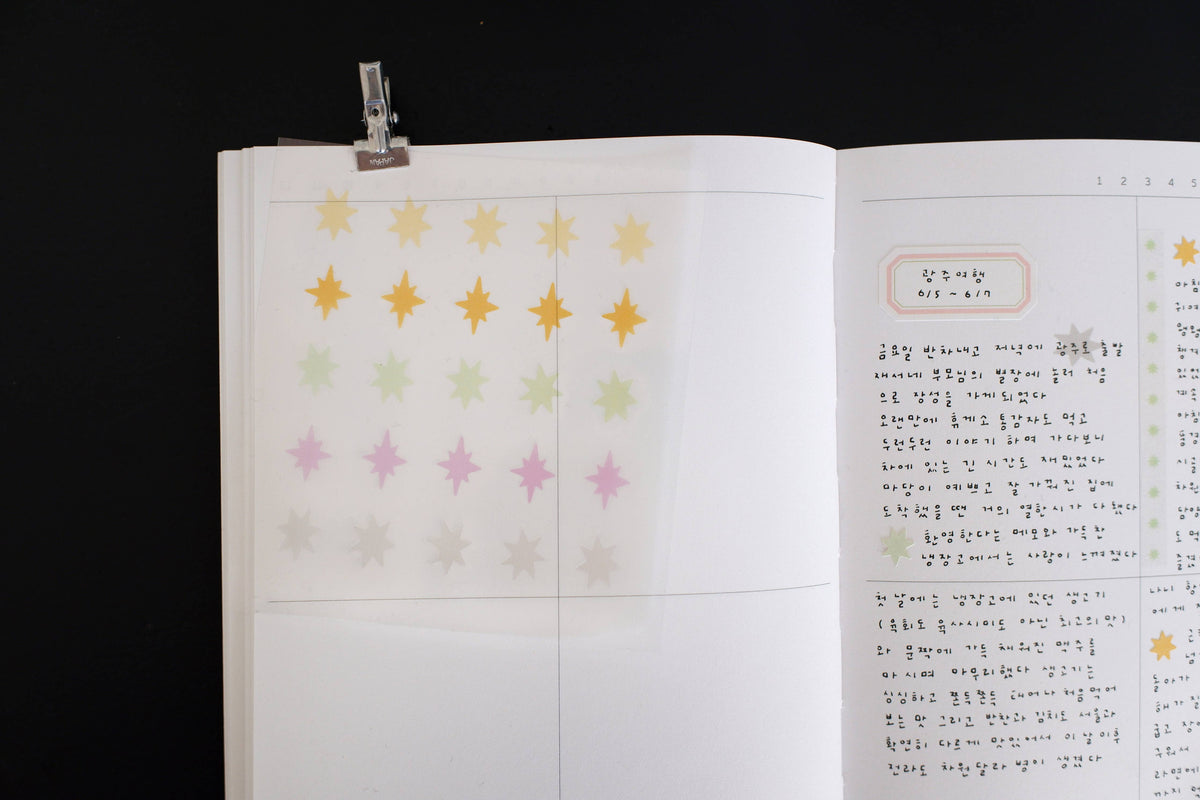 JAPAN
1 2 3 4 5
광주여행
6/5 ~ 6/7
금요일 반차내고 저녁에 광주로 출발
재서네 부모님의 별장에 놀러 처음
으로 장성을 가게되었다
오랜만에 휴게소 통감자도 먹고
두런두런 이야기 하며 가다보니
차에 있는 긴 시간도 재밌었다
마당이 예쁘고 잘 가꿔진 집에
도착했을 땐 거의 열한시가 다 됐다
환영한다는 메모와 가득찬
냉장고에서는 사랑이 느껴졌다
첫 날에는 냉장고에 있던 생고기
(육회도 육사시미도 아닌 최고의 맛)
와 문짝에 가득 채워진 맥주를
마시며 마무리했다 생고기는
싱싱하고 쫀득쫀득 태어나 처음먹어
보는 맛 그리고 반찬과 김치도 서울과
확연히 다르게 맛있어서 이 날 이후
전라도 차원달라 병이 생겼다